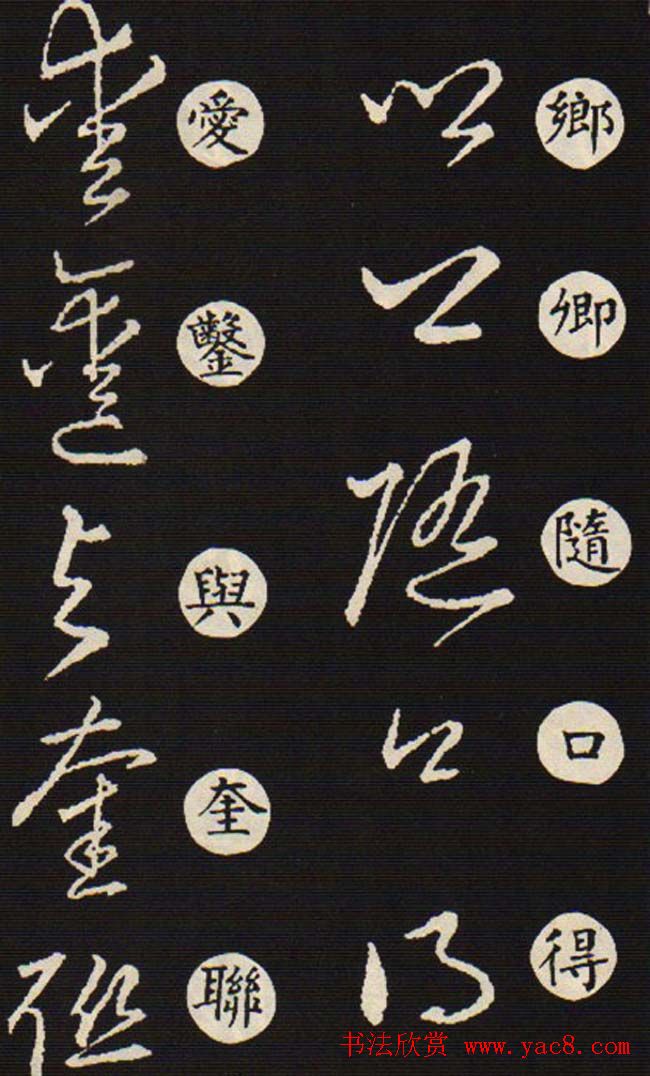 鄉卿隨口得
愛鑿與奎聯
书法欣赏 www.yac8.com